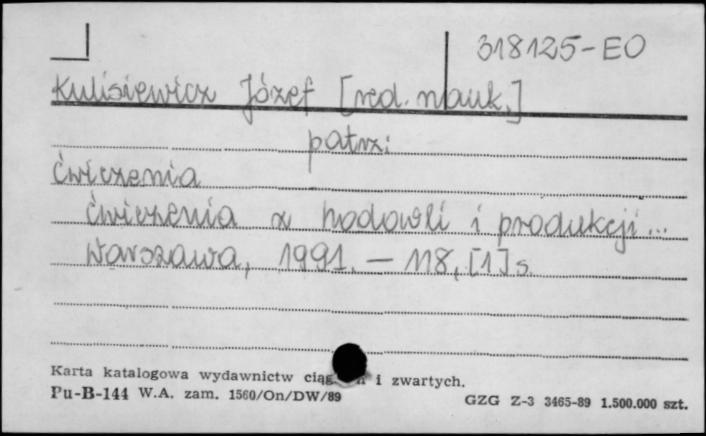 318125-EO
Kulisiewicz Józef [red. nauk.]
patrz:
ćwiczenia
ćwiczenia z hodowli i produkcji...
Warszawa, 1991. — 118, [1] s.
Karta katalogowa wydawnictw i zwartych.
Pu-B-144 W.A. zam. 1560/On/DW/89
GZG Z-3 3465-89 1.500.000 szt.